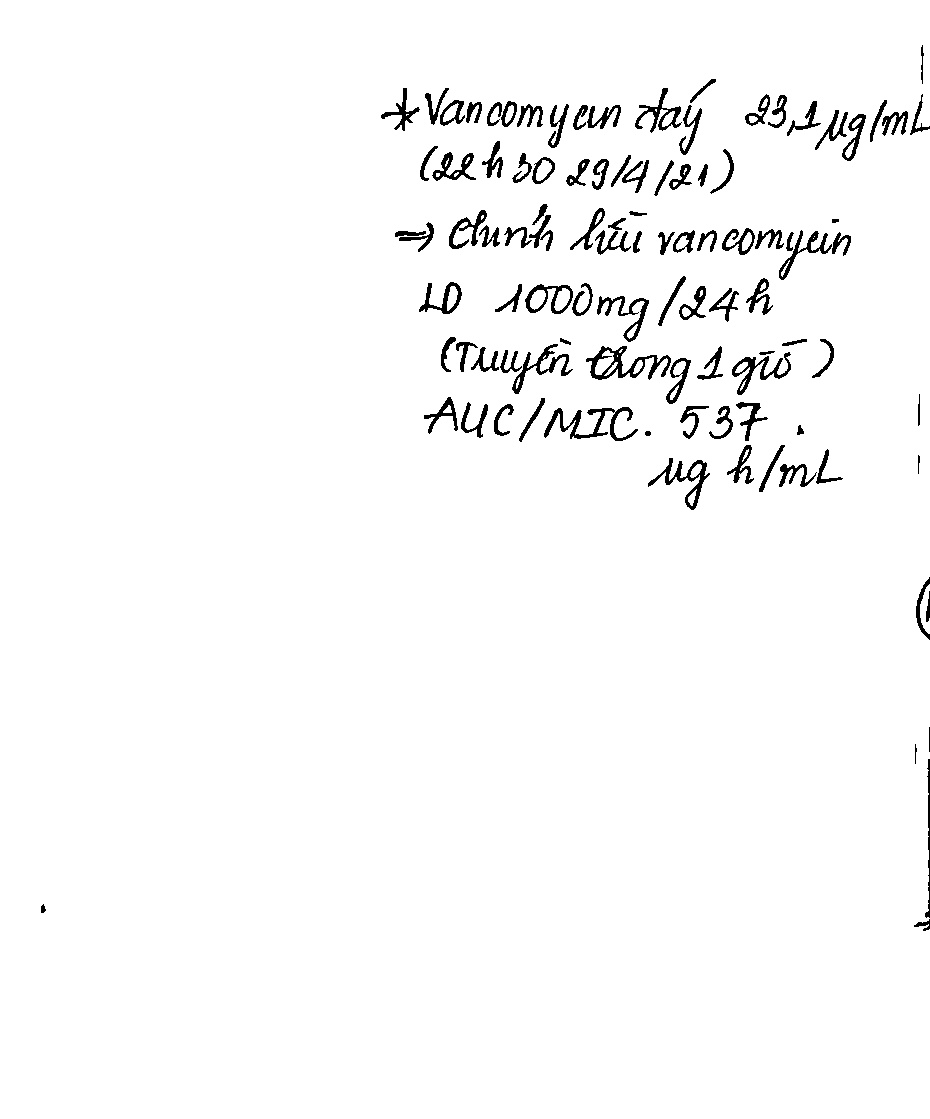 * Vancomycin đáy 23,1 µg/mL
(22h30 29/4/21)
=> Chỉnh liều vancomycin
LD 1000mg/24h
(Truyền trong 1 giờ)
AUC/MIC. 537.
µg h/mL